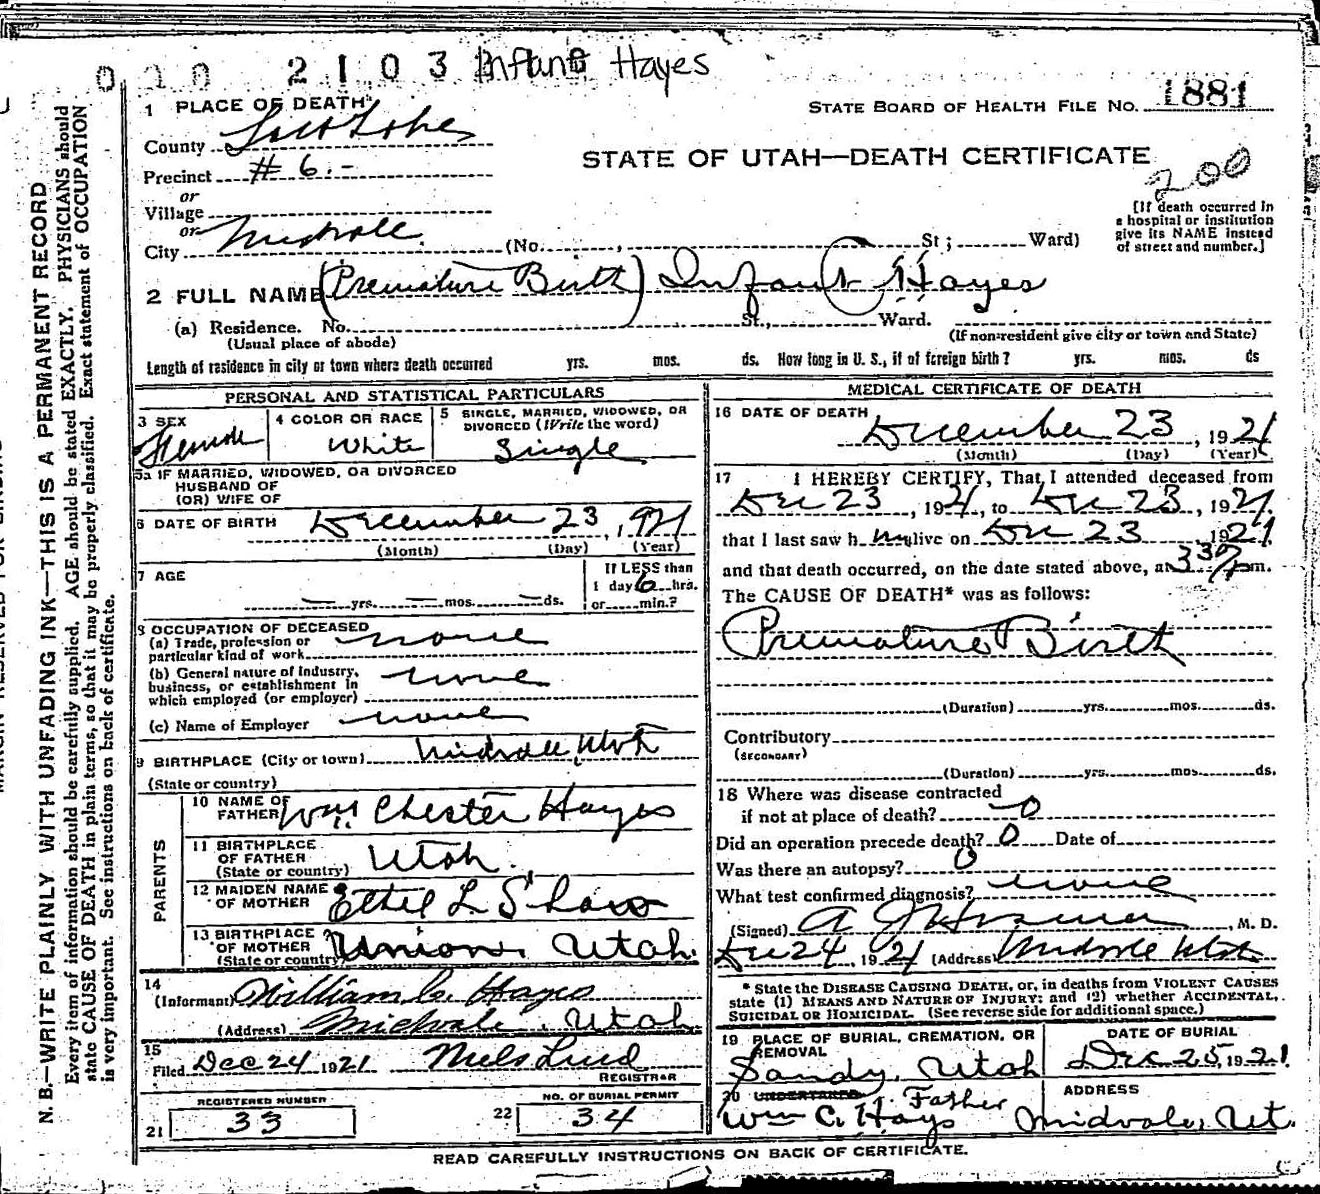 000 2103 Infant Hayes
1 PLACE OF DEATH
STATE BOARD OF HEALTH FILE No. 1881
County Salt Lake
STATE OF UTAH—DEATH CERTIFICATE
Precinct # 6. -
200
or
Village
[If death occurred in a hospital or institution give its NAME instead of street and number.]
or
City Midvale (No. , St ; Ward)
2 FULL NAME (Premature Birth) Infant Hayes
(a) Residence. No. St., Ward.
(Usual place of abode) (If non-resident give city or town and State)
Length of residence in city or town where death occurred yrs. mos. ds. How long in U. S., if of foreign birth? yrs. mos. ds
PERSONAL AND STATISTICAL PARTICULARS
3 SEX Female
4 COLOR OR RACE White
5 SINGLE, MARRIED, WIDOWED, OR DIVORCED (Write the word) Single
5a IF MARRIED, WIDOWED, OR DIVORCED
HUSBAND OF
(OR) WIFE OF
6 DATE OF BIRTH December 23, 1921
(Month) (Day) (Year)
7 AGE — yrs. — mos. — ds. If LESS than
1 day 6 hrs.
or min.?
8 OCCUPATION OF DECEASED
(a) Trade, profession or
particular kind of work none
(b) General nature of industry,
business, or establishment in
which employed (or employer) none
(c) Name of Employer none
9 BIRTHPLACE (City or town) Midvale, Utah
(State or country)
PARENTS
10 NAME OF FATHER Wm. Chester Hayes
11 BIRTHPLACE OF FATHER (State or country) Utah.
12 MAIDEN NAME OF MOTHER Ethel L. Shaw
13 BIRTHPLACE OF MOTHER (State or country) Union, Utah.
14
(Informant) William C. Hayes
(Address) Midvale, Utah
15
Filed Dec 24 1921 Niels Lind
REGISTRAR
REGISTERED NUMBER
21 33
NO. OF BURIAL PERMIT
22 34
MEDICAL CERTIFICATE OF DEATH
16 DATE OF DEATH
December 23, 1921
(Month) (Day) (Year)
17 I HEREBY CERTIFY, That I attended deceased from
Dec 23, 1921, to Dec 23, 1921,
that I last saw h alive on Dec 23 1921,
and that death occurred, on the date stated above, at 330 Pm.
The CAUSE OF DEATH* was as follows:
Premature Birth
(Duration) yrs. mos. ds.
Contributory
(SECONDARY)
(Duration) yrs. mos. ds.
18 Where was disease contracted
if not at place of death? 0
Did an operation precede death? 0 Date of
Was there an autopsy? 0
What test confirmed diagnosis? none
(Signed) A J , M. D.
Dec 24, 1921 (Address) Midvale Utah
* State the DISEASE CAUSING DEATH, or, in deaths from VIOLENT CAUSES
state (1) MEANS AND NATURE OF INJURY; and (2) whether ACCIDENTAL,
SUICIDAL OR HOMICIDAL. (See reverse side for additional space.)
19 PLACE OF BURIAL, CREMATION, OR REMOVAL
Sandy, Utah
DATE OF BURIAL
Dec 25, 1921
20 UNDERTAKER Father
Wm C. Hays
ADDRESS
Midvale, Ut.
READ CAREFULLY INSTRUCTIONS ON BACK OF CERTIFICATE.
N. B.—WRITE PLAINLY WITH UNFADING INK—THIS IS A PERMANENT RECORD
Every item of information should be carefully supplied. AGE should be stated EXACTLY. PHYSICIANS should
state CAUSE OF DEATH in plain terms, so that it may be properly classified. Exact statement of OCCUPATION
is very important. See instructions on back of certificate.